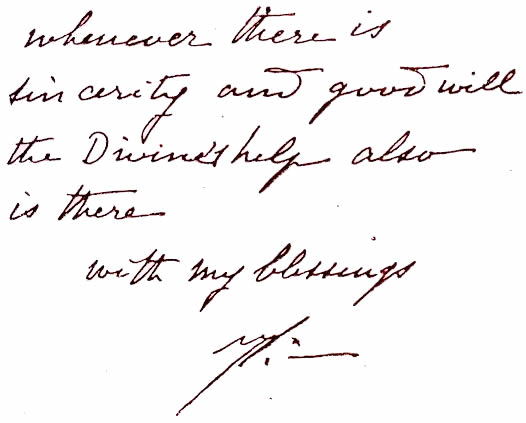 whenever there is
sincerity and good will
the Divine's help also
is there
with my blessings